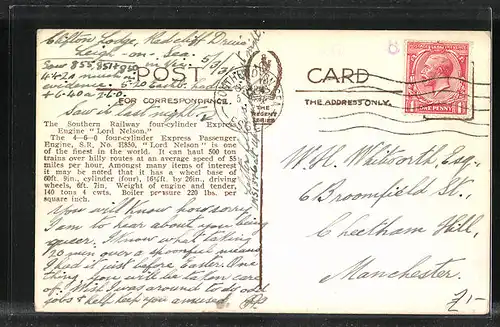 Clifton Lodge, Radcliff Drive
Leigh-on-Sea
5/3/1
Saw 855, 851 + 850
4.42 a much in
evidence. 5.20 Earlb. had
+ 6.40 a 2.6.0.
Saw it last night.
POST CARD
FOR CORRESPONDENCE.
THE ADDRESS ONLY.
THE
REGENT
SERIES
ONE PENNY
The Southern Railway four-cylinder Express
Engine "Lord Nelson."
The 4—6—0 four-cylinder Express Passenger
Engine, S.R. No. E850, "Lord Nelson" is one
of the finest in the world. It can haul 500 ton
trains over hilly routes at an average speed of 55
miles per hour. Amongst many items of interest
it may be noted that it has a wheel base of
60ft. 9in., cylinder (four), 16½ft. by 26in., driving
wheels, 6ft. 7in, Weight of engine and tender,
140 tons 4 cwts. Boiler pressure 220 lbs. per
square inch.
You will know how sorry
I am to hear about you being
queer. I know what taking
20 min over a spoonful means
I had it just before Easter. One
thing you will be taken care
of. Wish I was around to do odd
jobs + help keep you amused.
W. H. Whitworth, Esq.
6 Broomfield St.,
Cheetham Hill,
Manchester.
£1-